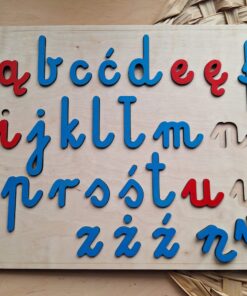 ą b c ć d e ę f
i j k l ł m n
p r s ś t u
z ż ź n